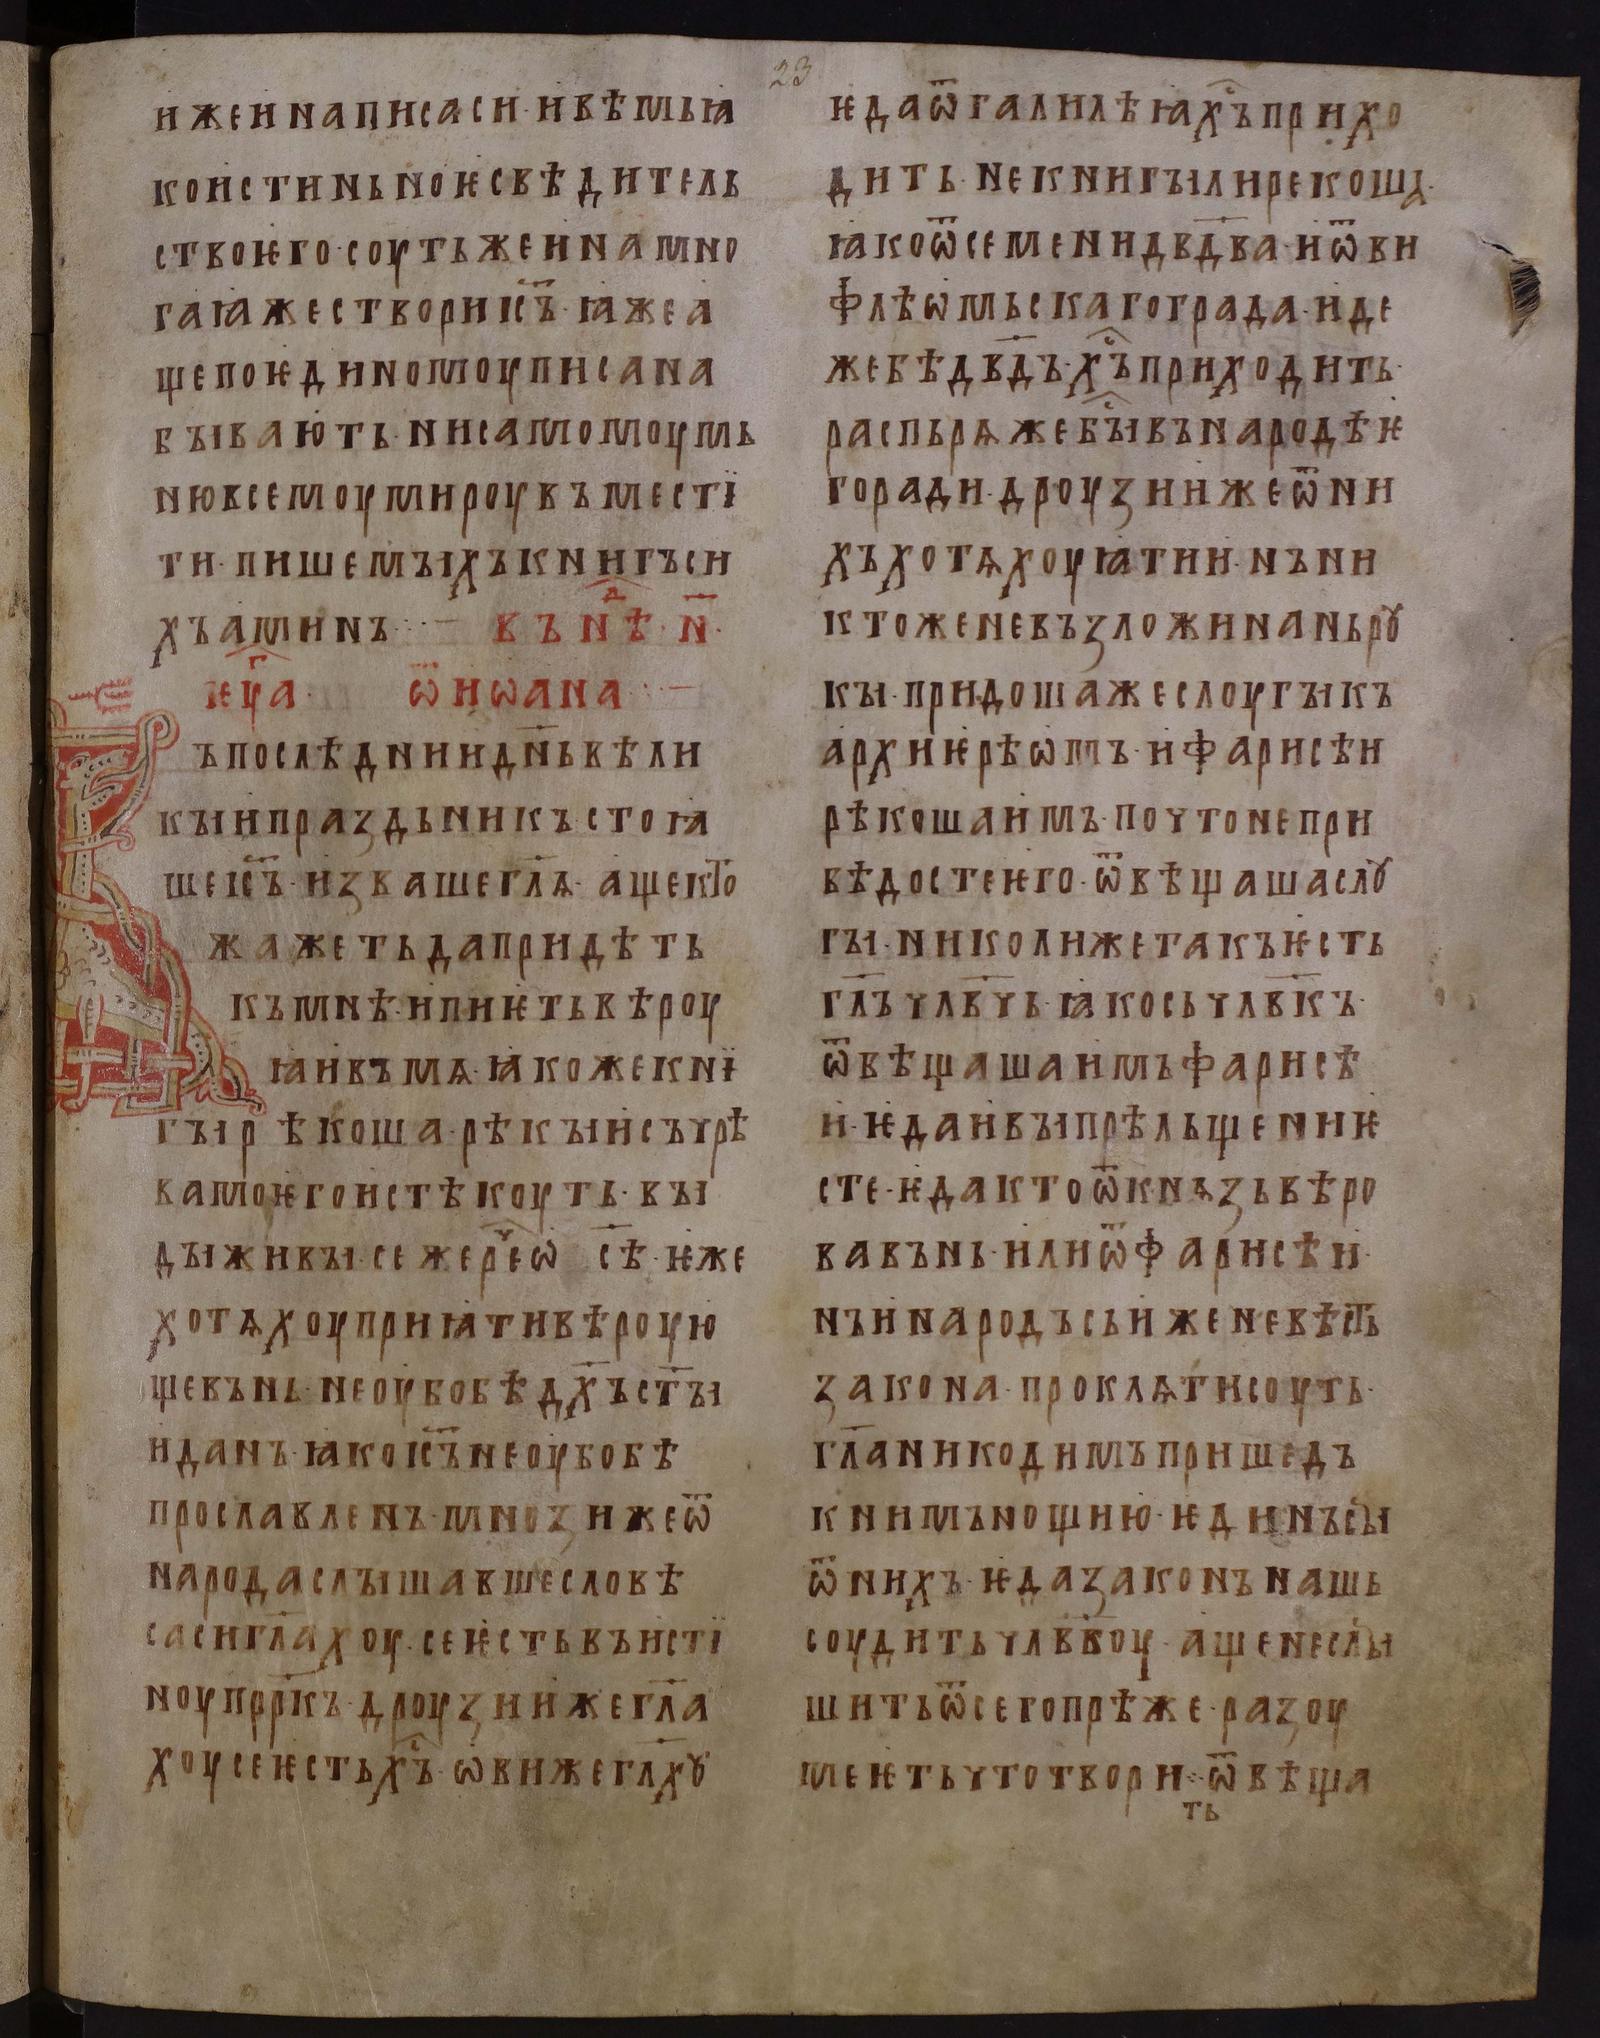 23
иже и написа си· и вѣмь ꙗ
ко истиньно ѥ свѣдитель
ство ѥго· соуть же и на мно
га ꙗже створи іс҃ъ· ꙗже а
ще по ѥдиномоу писана
бывають· ни самомоу мь
ню всемоу мироу въмесТї
ти· пишемыхъ книгъ си
хъ аминъ·:— въ нⷣѣ· н҃·
ѥуⷢа· ѿ иѡана·:—
ъ послѣднии дн҃ь вели
кыи праздьникъ стоꙗ
ше іс҃ъ· и зваше гл҃ѧ· аще кто
жажеть да придѣть
къ мнѣ· и пиѥть вѣроу
ꙗи въ мѧ· ꙗкоже кнї
гы рѣкоша· рѣкы ис чрѣ
ва моѥго истѣкоуть· вы
ды живы· се же реⷱѡ с҃ѣ· ѥже
хотѧхоу приꙗти вѣроую
ще вънь· не оу бо бѣ дх҃ъ ст҃ы
и данъ· ꙗко іс҃ъ не оу бо бѣ
прославленъ· мнози же ѿ
народа слышавше словѣ
са си гл҃ахоу· се ѥсть въ истї
ноу прр҃къ· дроузии же гл҃а
хоу се ѥсть хⷭ҇ъ· ѡви же гл҃хꙋ
ѥда ѿ галилѣꙗ хⷭ҇ъ прихо
дить· не книгы ли рекошѧ·
ꙗко ѿ семени двд҃ва· и ѿ ви
флѣѡмьскаго града· иде
же бѣ двд҃ъ· хⷭ҇ъ приходить·
распьрѧ же бⷭ҇ы въ народѣ ѥ
го ради· дроузии же ѿ ни
хъ хотѧхоу ꙗти и· нъ ни
ктоже не възложи на нь рꙋ
кы· придоша же слоугы къ
архиѥрѣѡмъ· и фарисѣи
рѣкоша имъ· почто не при
вѣдосте ѥго· ѿвѣщаша слꙋ
гы· николиже такъ ѥсть
гл҃ъ члв҃чь· ꙗко сь члв҃къ·
ѿвѣщаша имъ фарисѣ
и· ѥда и вы прѣльщени ѥ
сте· ѥда кто ѿ кнѧзь вѣро
ва вънь· или ѿ фарисѣи·
нъ и народъ сь иже не вѣсть
закона· проклѧти соуть·
гл҃а никодимъ пришедъ
к нимъ нощию· ѥдинъ сы
ѿ нихъ· ѥда законъ нашь
соудить члв҃коу· аще не слы
шить ѿ сего прѣже· разоу
меѥть что твори· ѿвѣща
ть